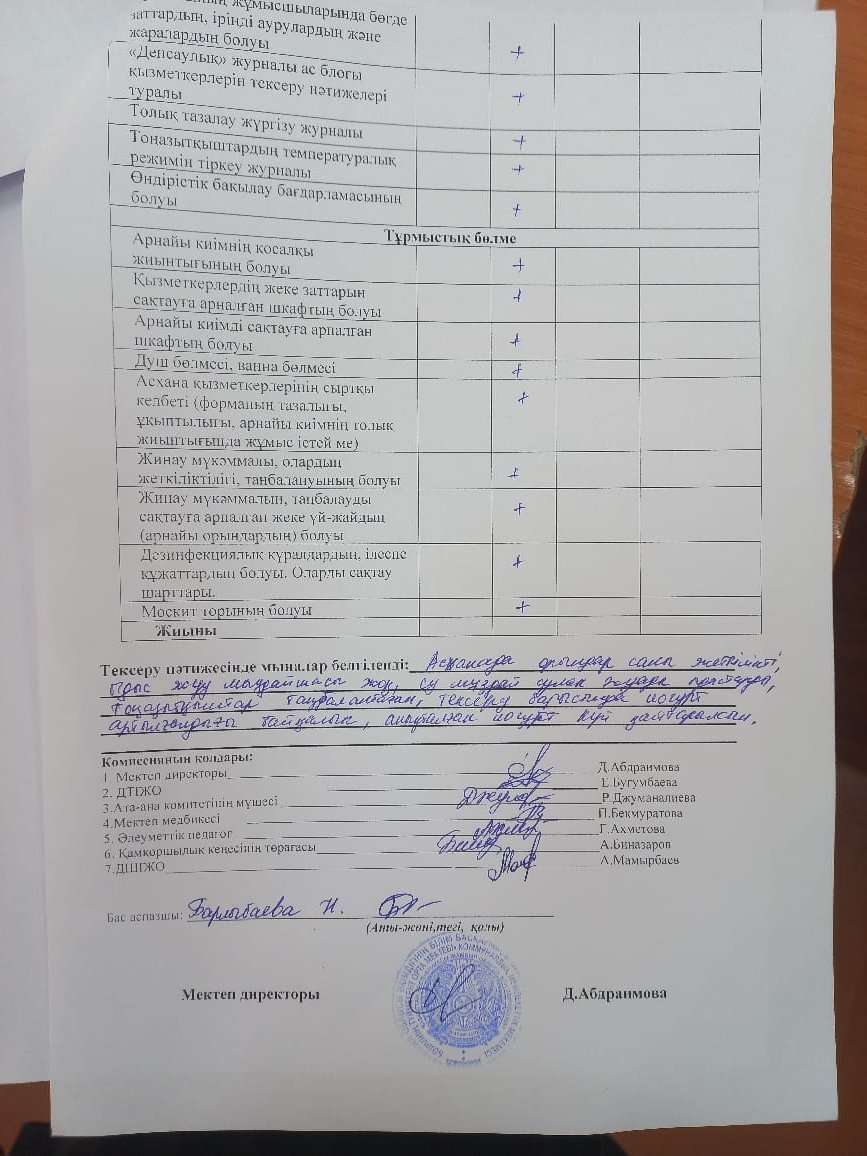 жұмысшыларында бөгде
заттардың, іріңді аурулардың және
жаралардың болуы +
«Денсаулық» журналы ас блогы
қызметкерлерін тексеру нәтижелері
туралы +
Толық тазалау жүргізу журналы +
Тоңазытқыштардың температуралық
режимін тіркеу журналы +
Өндірістік бақылау бағдарламасының
болуы +
Тұрмыстық бөлме
Арнайы киімнің қосалқы
жиынтығының болуы +
Қызметкерлердің жеке заттарын
сақтауға арналған шкафтың болуы +
Арнайы киімді сақтауға арналған
шкафтың болуы +
Душ бөлмесі, ванна бөлмесі +
Асхана қызметкерлерінің сыртқы
келбеті (форманың тазалығы, +
ұқыптылығы, арнайы киімнің толық
жиынтығында жұмыс істей ме)
Жинау мүкәммалы, олардың
жеткіліктілігі, таңбалануының болуы +
Жинау мүкәммалын, таңбалауды
сақтауға арналған жеке үй-жайдың +
(арнайы орындардың) болуы
Дезинфекциялық құралдардың, ілеспе
құжаттардың болуы. Оларды сақтау +
шарттары.
Москит торының болуы +
Жиыны
Тексеру нәтижесінде мыналар белгіленді: Асханада орындар саны жеткілікті,
Ыдыс жуу жоқ, су
тоңазытқыштар таңбаланбаған, тексеру барысында йогурт
артылғандығы байқалып, йогурт
Комиссияның қолдары:
1 Мектеп директоры Д.Абдраимова
2. ДТІЖО Е.Бугумбаева
3.Ата-ана комитетінің мүшесі Р.Джуманалиева
4.Мектеп медбикесі П.Бекмуратова
5. Әлеуметтік педагог Г.Ахметова
6. Қамқоршылық кеңесінің төрағасы А.Биназаров
7.ДШІЖО А.Мамырбаев
Бас аспазшы: Барлыбаева Н.
(Аты-жөні,тегі, қолы)
Мектеп директоры Д.Абдраимова